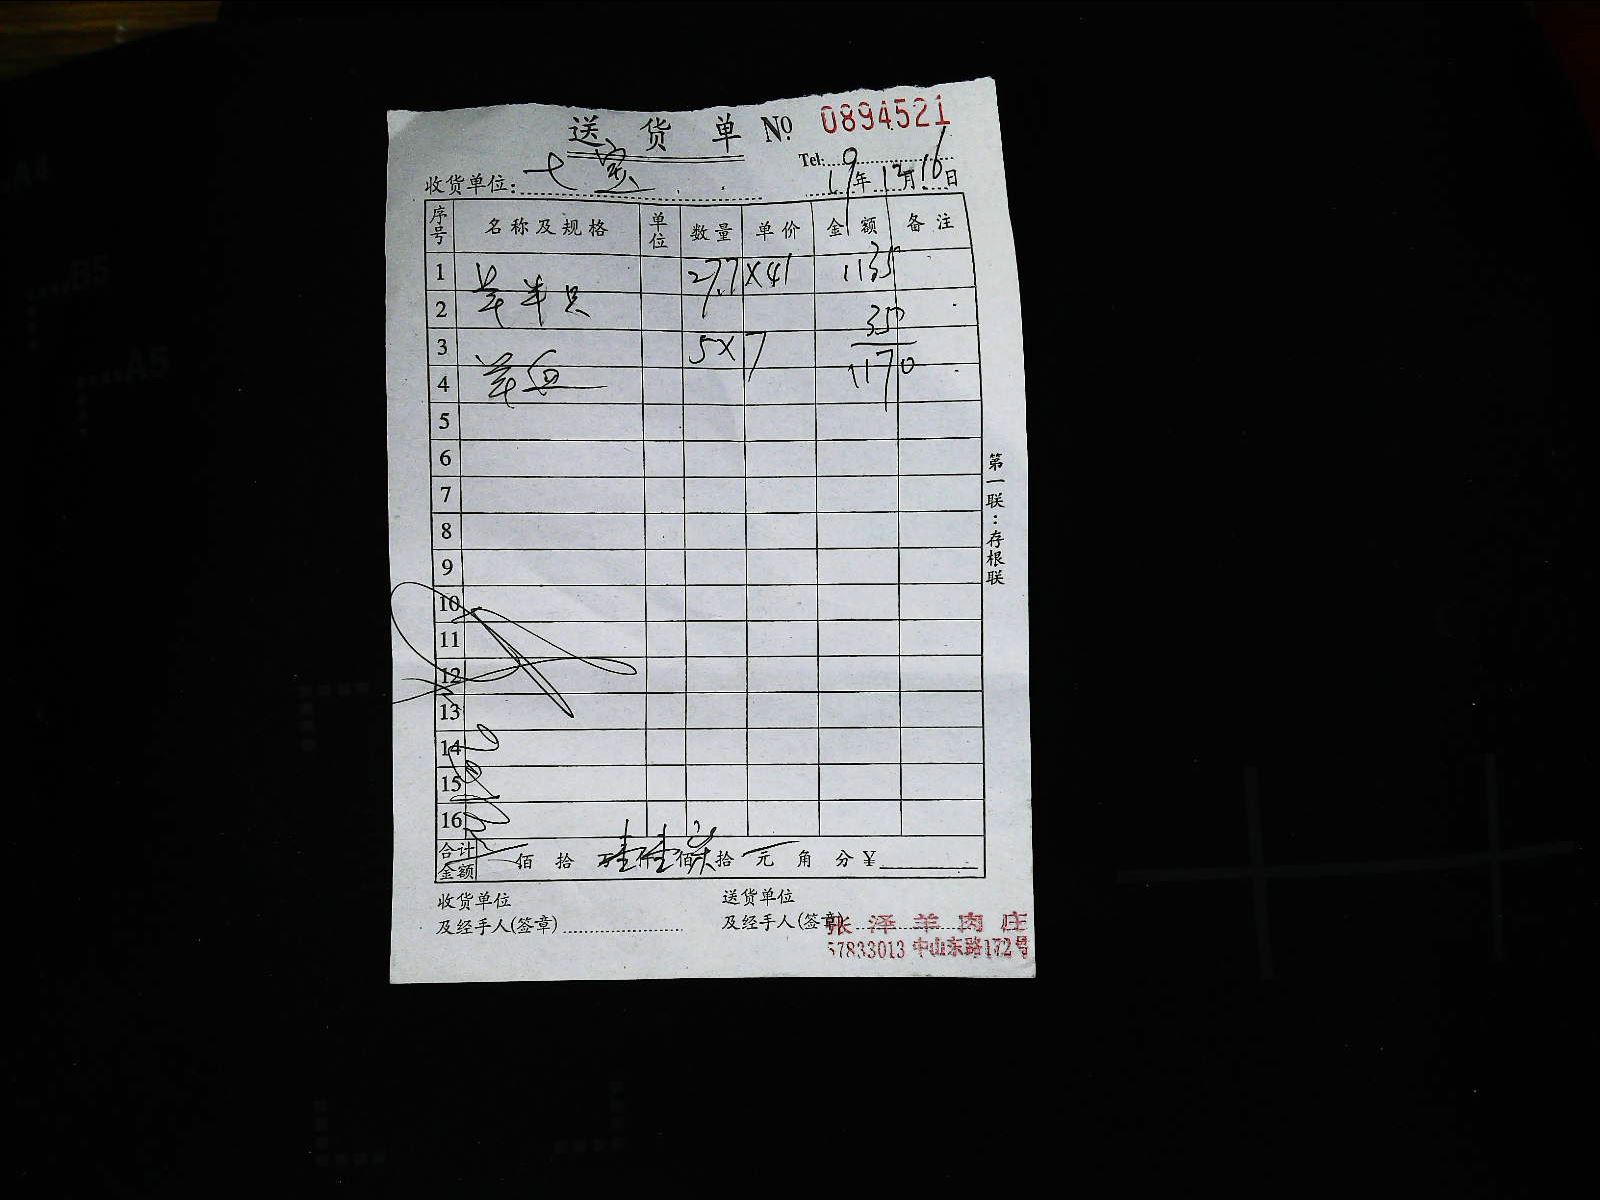 送货单 No. 0894521
Tel:
收货单位: 七宝 19年12月16日
序号 名称及规格 单位 数量 单价 金额 备注
1 羊半只 27.7 X41 1135
2 35
3 羊血 5X 7 1170
4
5
6
7
8
9
10
11
12
13
14
15
16
合计金额 佰 拾 壹仟壹佰柒拾 元 角 分 ¥
收货单位 送货单位
及经手人(签章) 及经手人(签章)
张泽羊肉庄
57833013 中山东路172号
第一联:存根联